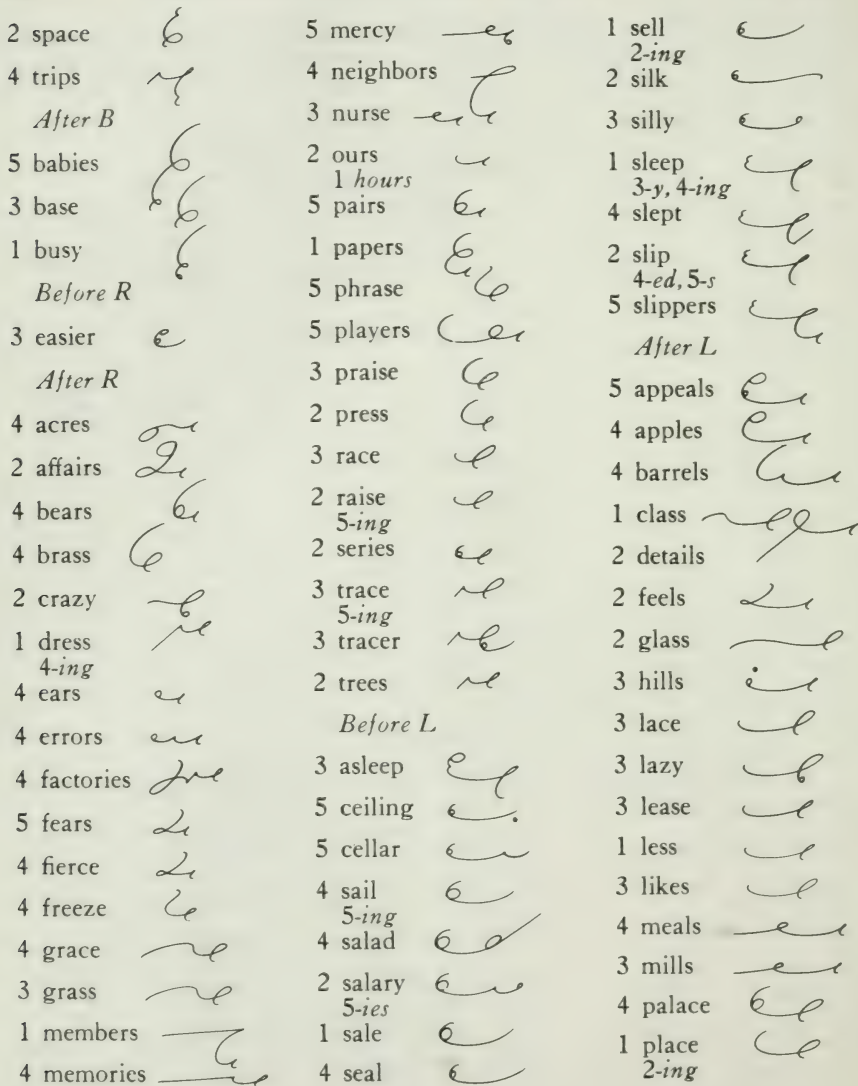 2 space
4 trips
After B
5 babies
3 base
1 busy
Before R
3 easier
After R
4 acres
2 affairs
4 bears
4 brass
2 crazy
1 dress
4-ing
4 ears
4 errors
4 factories
5 fears
4 fierce
4 freeze
4 grace
3 grass
1 members
4 memories
5 mercy
4 neighbors
3 nurse
2 ours
1 hours
5 pairs
1 papers
5 phrase
5 players
3 praise
2 press
3 race
2 raise
5-ing
2 series
3 trace
5-ing
3 tracer
2 trees
Before L
3 asleep
5 ceiling
5 cellar
4 sail
5-ing
4 salad
2 salary
5-ies
1 sale
4 seal
1 sell
2-ing
2 silk
3 silly
1 sleep
3-y, 4-ing
4 slept
2 slip
4-ed, 5-s
5 slippers
After L
5 appeals
4 apples
4 barrels
1 class
2 details
2 feels
2 glass
3 hills
3 lace
3 lazy
3 lease
1 less
3 likes
4 meals
3 mills
4 palace
1 place
2-ing